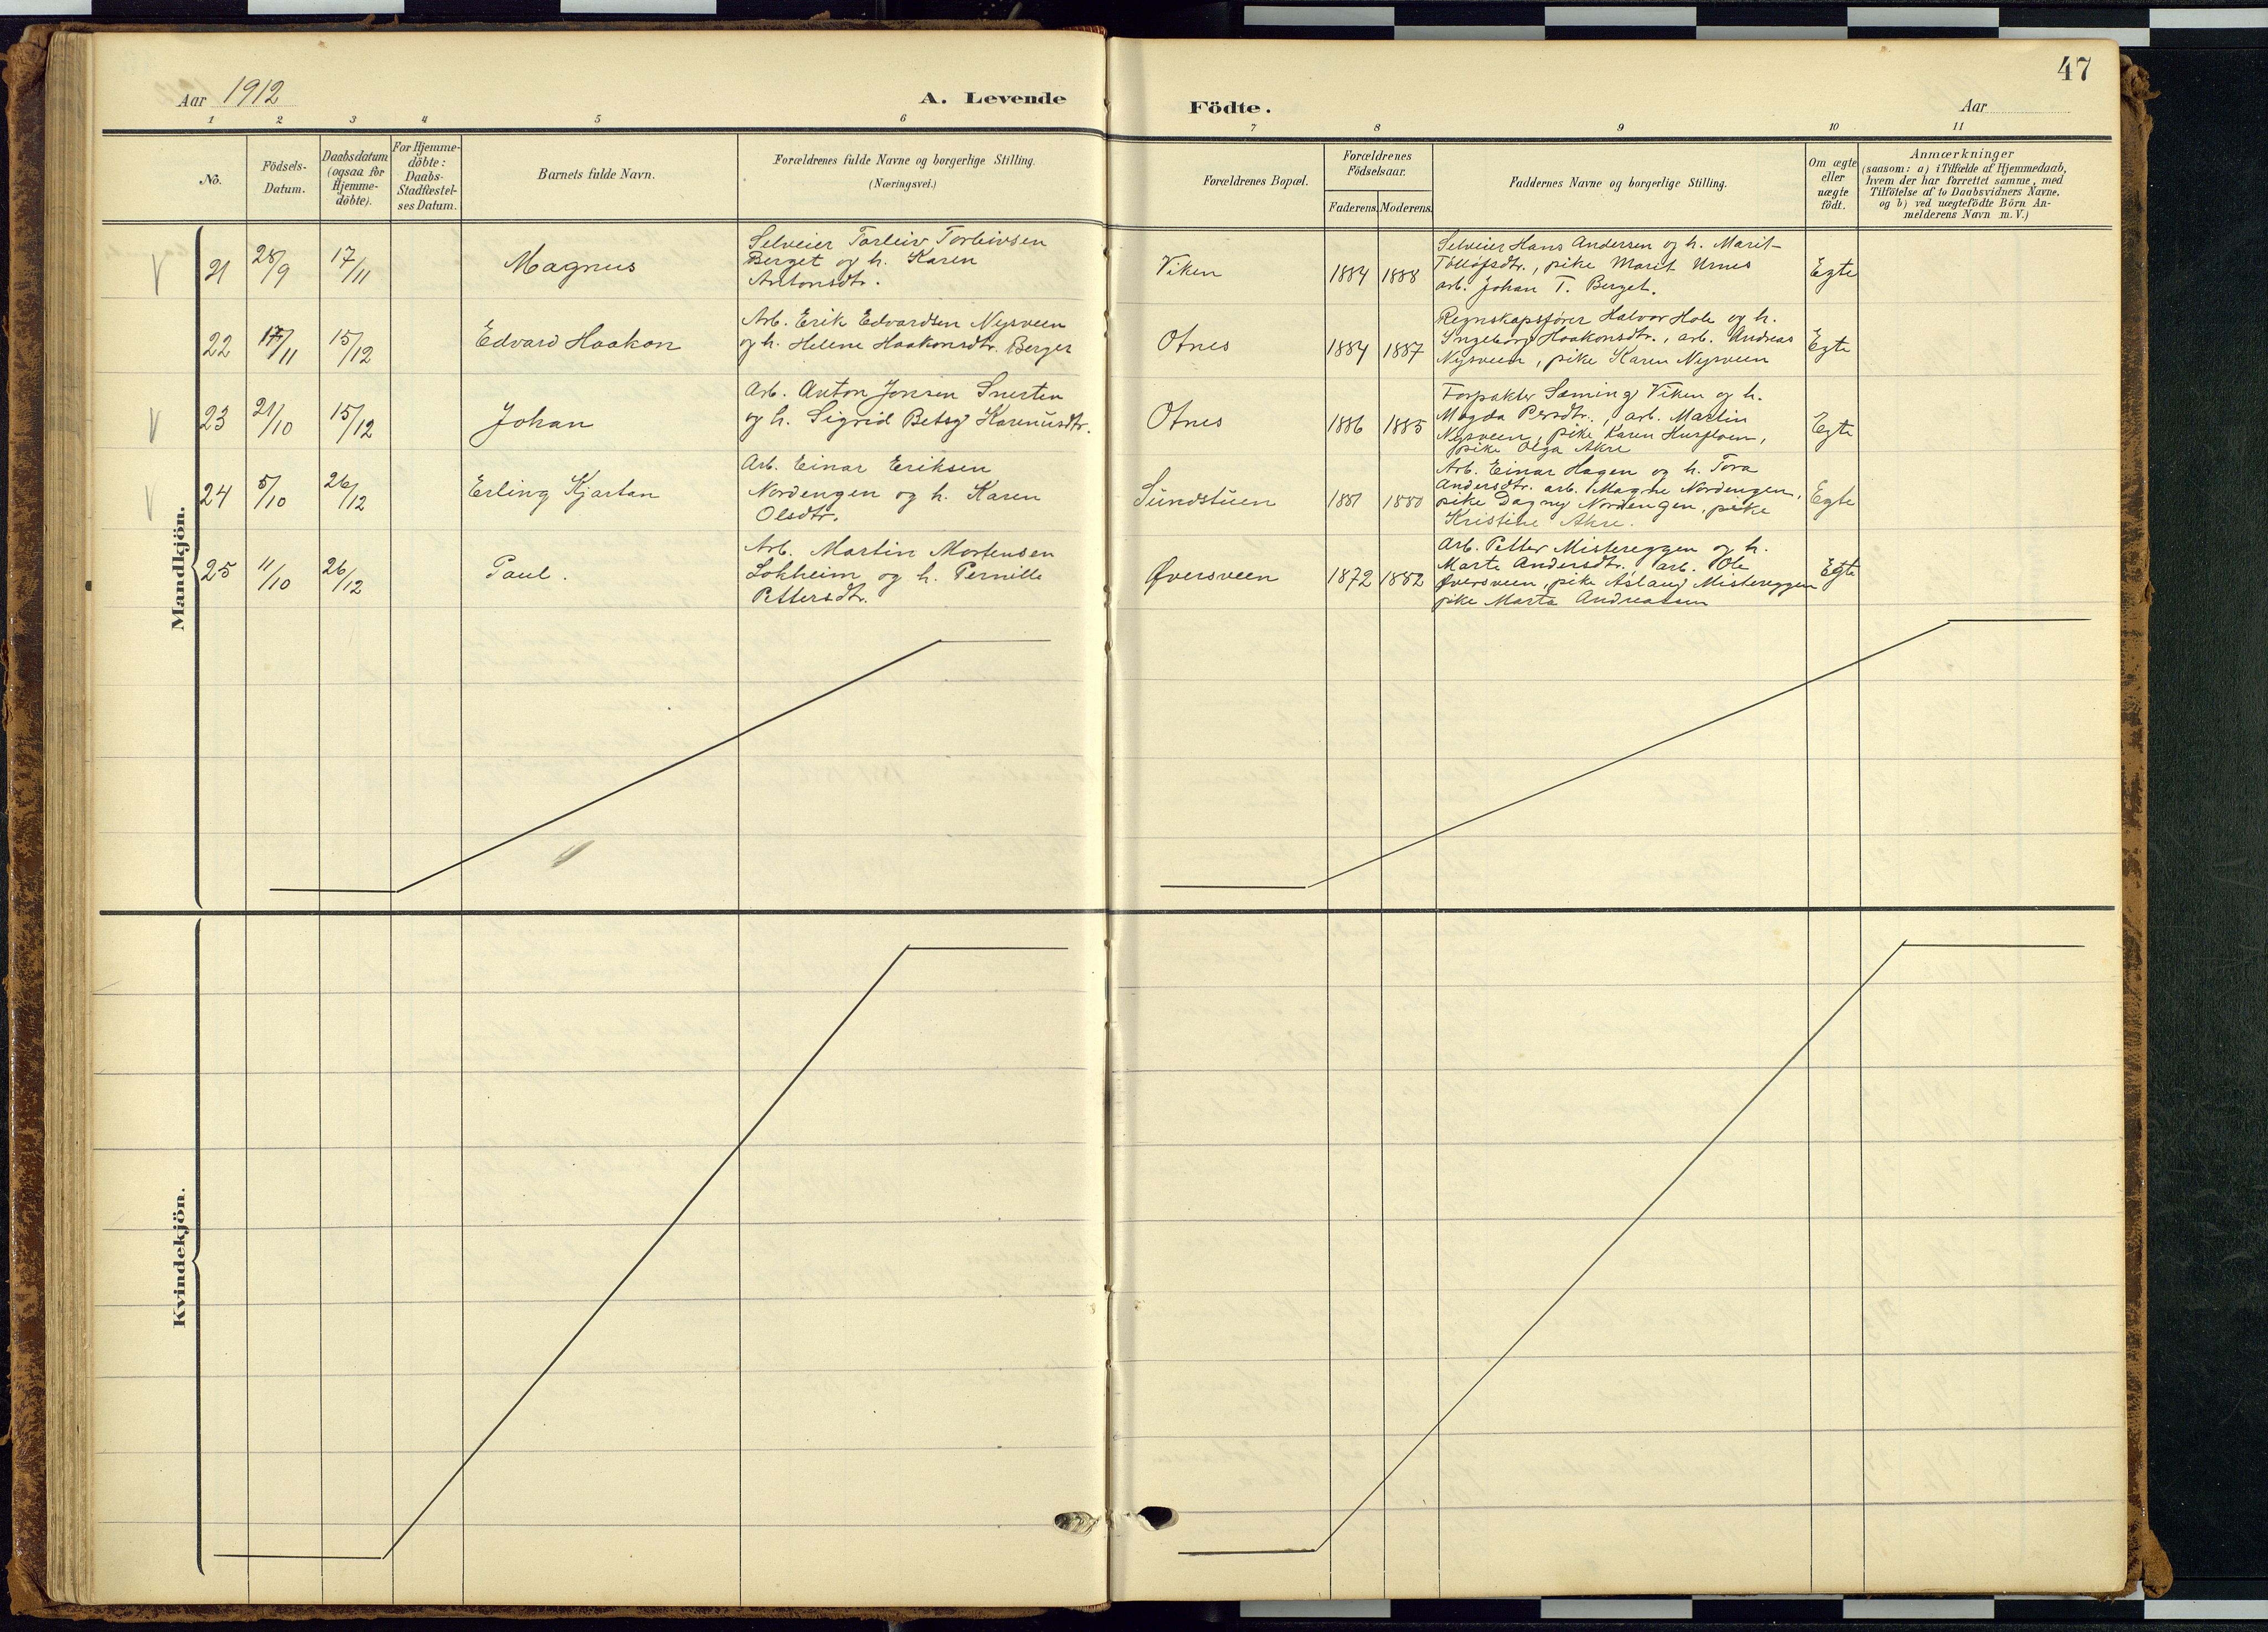 47
Aar 1912
A. Levende
Födte.
Aar
1 2 3 4 5 6 7 8 9 10 11
No.
Födsels-
Datum.
Daabsdatum
(ogsaa for
Hjemme-
döbte).
For Hjemme-
döbte:
Daabs-
Stadfæstel-
ses Datum.
Barnets fulde Navn.
Forældrenes fulde Navne og borgerlige Stilling.
(Næringsvei.)
Forældrenes Bopæl.
Forældrenes
Födselsaar.
Faderens. Moderens.
Faddernes Navne og borgerlige Stilling.
Om ægte
eller
uægte
födt.
Anmærkninger
(saasom: a) i Tilfælde af Hjemmedaab,
hvem der har forrettet samme, med
Tilföielse af to Daabsvidners Navne.
og b) ved uægtefödte Börn An-
melderens Navn m. V.)
Mandkjön.
21 28/9 17/11 Magnus
Selveier Torleiv Torleivsen
Berget og h. Karen
Antonsdtr.
Viken 1884 1888
Selveier Hans Andersen og h. Marit
Tollofsdtr., pike Marit Urnes
arb. Johan T. Berget.
Egte
22 17/11 15/12 Edvard Haakon
Arb. Erik Edvardsen Nysveen
og h. Helene Haakonsdtr. Berger
Otnes 1884 1887
Regnskapsfører Halvor Hole og h.
Ingeborg Haakonsdtr., arb. Andreas
Nysveen, pike Karen Nysveen
Egte
23 21/10 15/12 Johan
Arb. Anton Jonsen Snerten
og h. Sigrid Betsy Karenusdtr.
Otnes 1886 1885
Forpakter Sæming Viken og h.
Magda Persdtr., arb. Martin
Nysveen, pike Karen Husfloen,
pike Olga Akre
Egte
24 5/10 26/12 Erling Kjartan
Arb. Einar Eriksen
Nordengen og h. Karen
Olsdtr.
Sundstuen 1881 1880
Arb. Einar Hagen og h. Tora
Andersdtr. arb. Magne Nordengen,
pike Dagny Nordengen, pike
Kristine Akre.
Egte
25 11/10 26/12 Paul.
Arb. Martin Mortensen
Lokheim og h. Pernille
Pettersdtr.
Øversveen 1872 1882
Arb. Petter Mistereggen og h.
Marte Andersdtr. arb. Ole
Øversveen, pike Aslaug Mistereggen
pike Marta Andreassen
Egte
Kvindekjön.